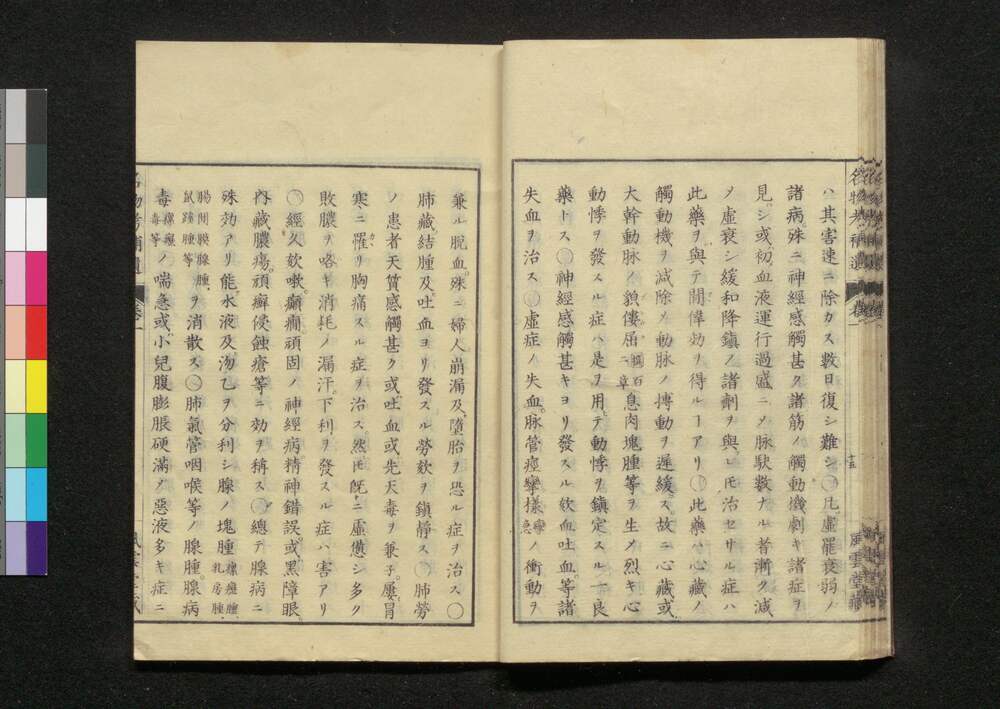 ハ其害速ニ除カス數日復シ難シ○凡虛羸衰弱ノ
諸病殊ニ神經感觸甚ク諸筋ノ觸動機劇キ諸症ヲ
見シ或初血液運行過盛ニメ脉駃數ナル者漸ク減
メ虛衰シ緩和降鎮ノ諸劑ヲ與ヒ𪜈治セサル症ハ
此藥ヲ與テ間偉効ヲ得ルヿアリ○此藥ハ心臓ノ
觸動機ヲ減除メ動脉ノ搏動ヲ遲緩ス故ニ心臓或
大幹動脉ノ貌僂屈百二章息肉塊腫等ヲ生メ烈キ心
動悸ヲ發スル症ハ是ヲ用テ動悸ヲ鎮定スルノ良
藥トス○神經感觸甚キヨリ發スル欬血吐血等諸
失血ヲ治ス○虛症ノ失血脉管痙攣樣攣急ノ衝動ヲ
名物考補遺 卷一
十五
風雲堂藏
兼ル脫血殊ニ婦人崩漏及墮胎ヲ恐ル症ヲ治ス○
肺臓結腫及吐血ヨリ發スル勞欬ヲ鎮靜ス○肺勞
ノ患者天質感觸甚ク或吐血或先天毒ヲ兼子屢冒
寒ニ罹リ胸痛スル症ヲ治ス然𪜈既ニ虛憊シ多ク
敗膿ヲ咯キ消耗ノ漏汗下利ヲ發スル症ハ害アリ
○經久欬嗽癲癇頑固ノ神經病精神錯誤或黑障眼
內臓膿瘍頑癬侵蝕瘡等ニ効ヲ稱ス○總テ腺病ニ
殊効アリ能水液及汤乙ヲ分利シ腺ノ塊腫瘰癧腫乳房腫
腸間膜腺腫鼠蹊腫等ヲ消散ス○肺氣管咽喉等ノ腺腫腺病
毒瘰癧毒等ノ喘急或小兒腹膨脹硬滿メ惡液多キ症ニ
名物考補遺 卷一